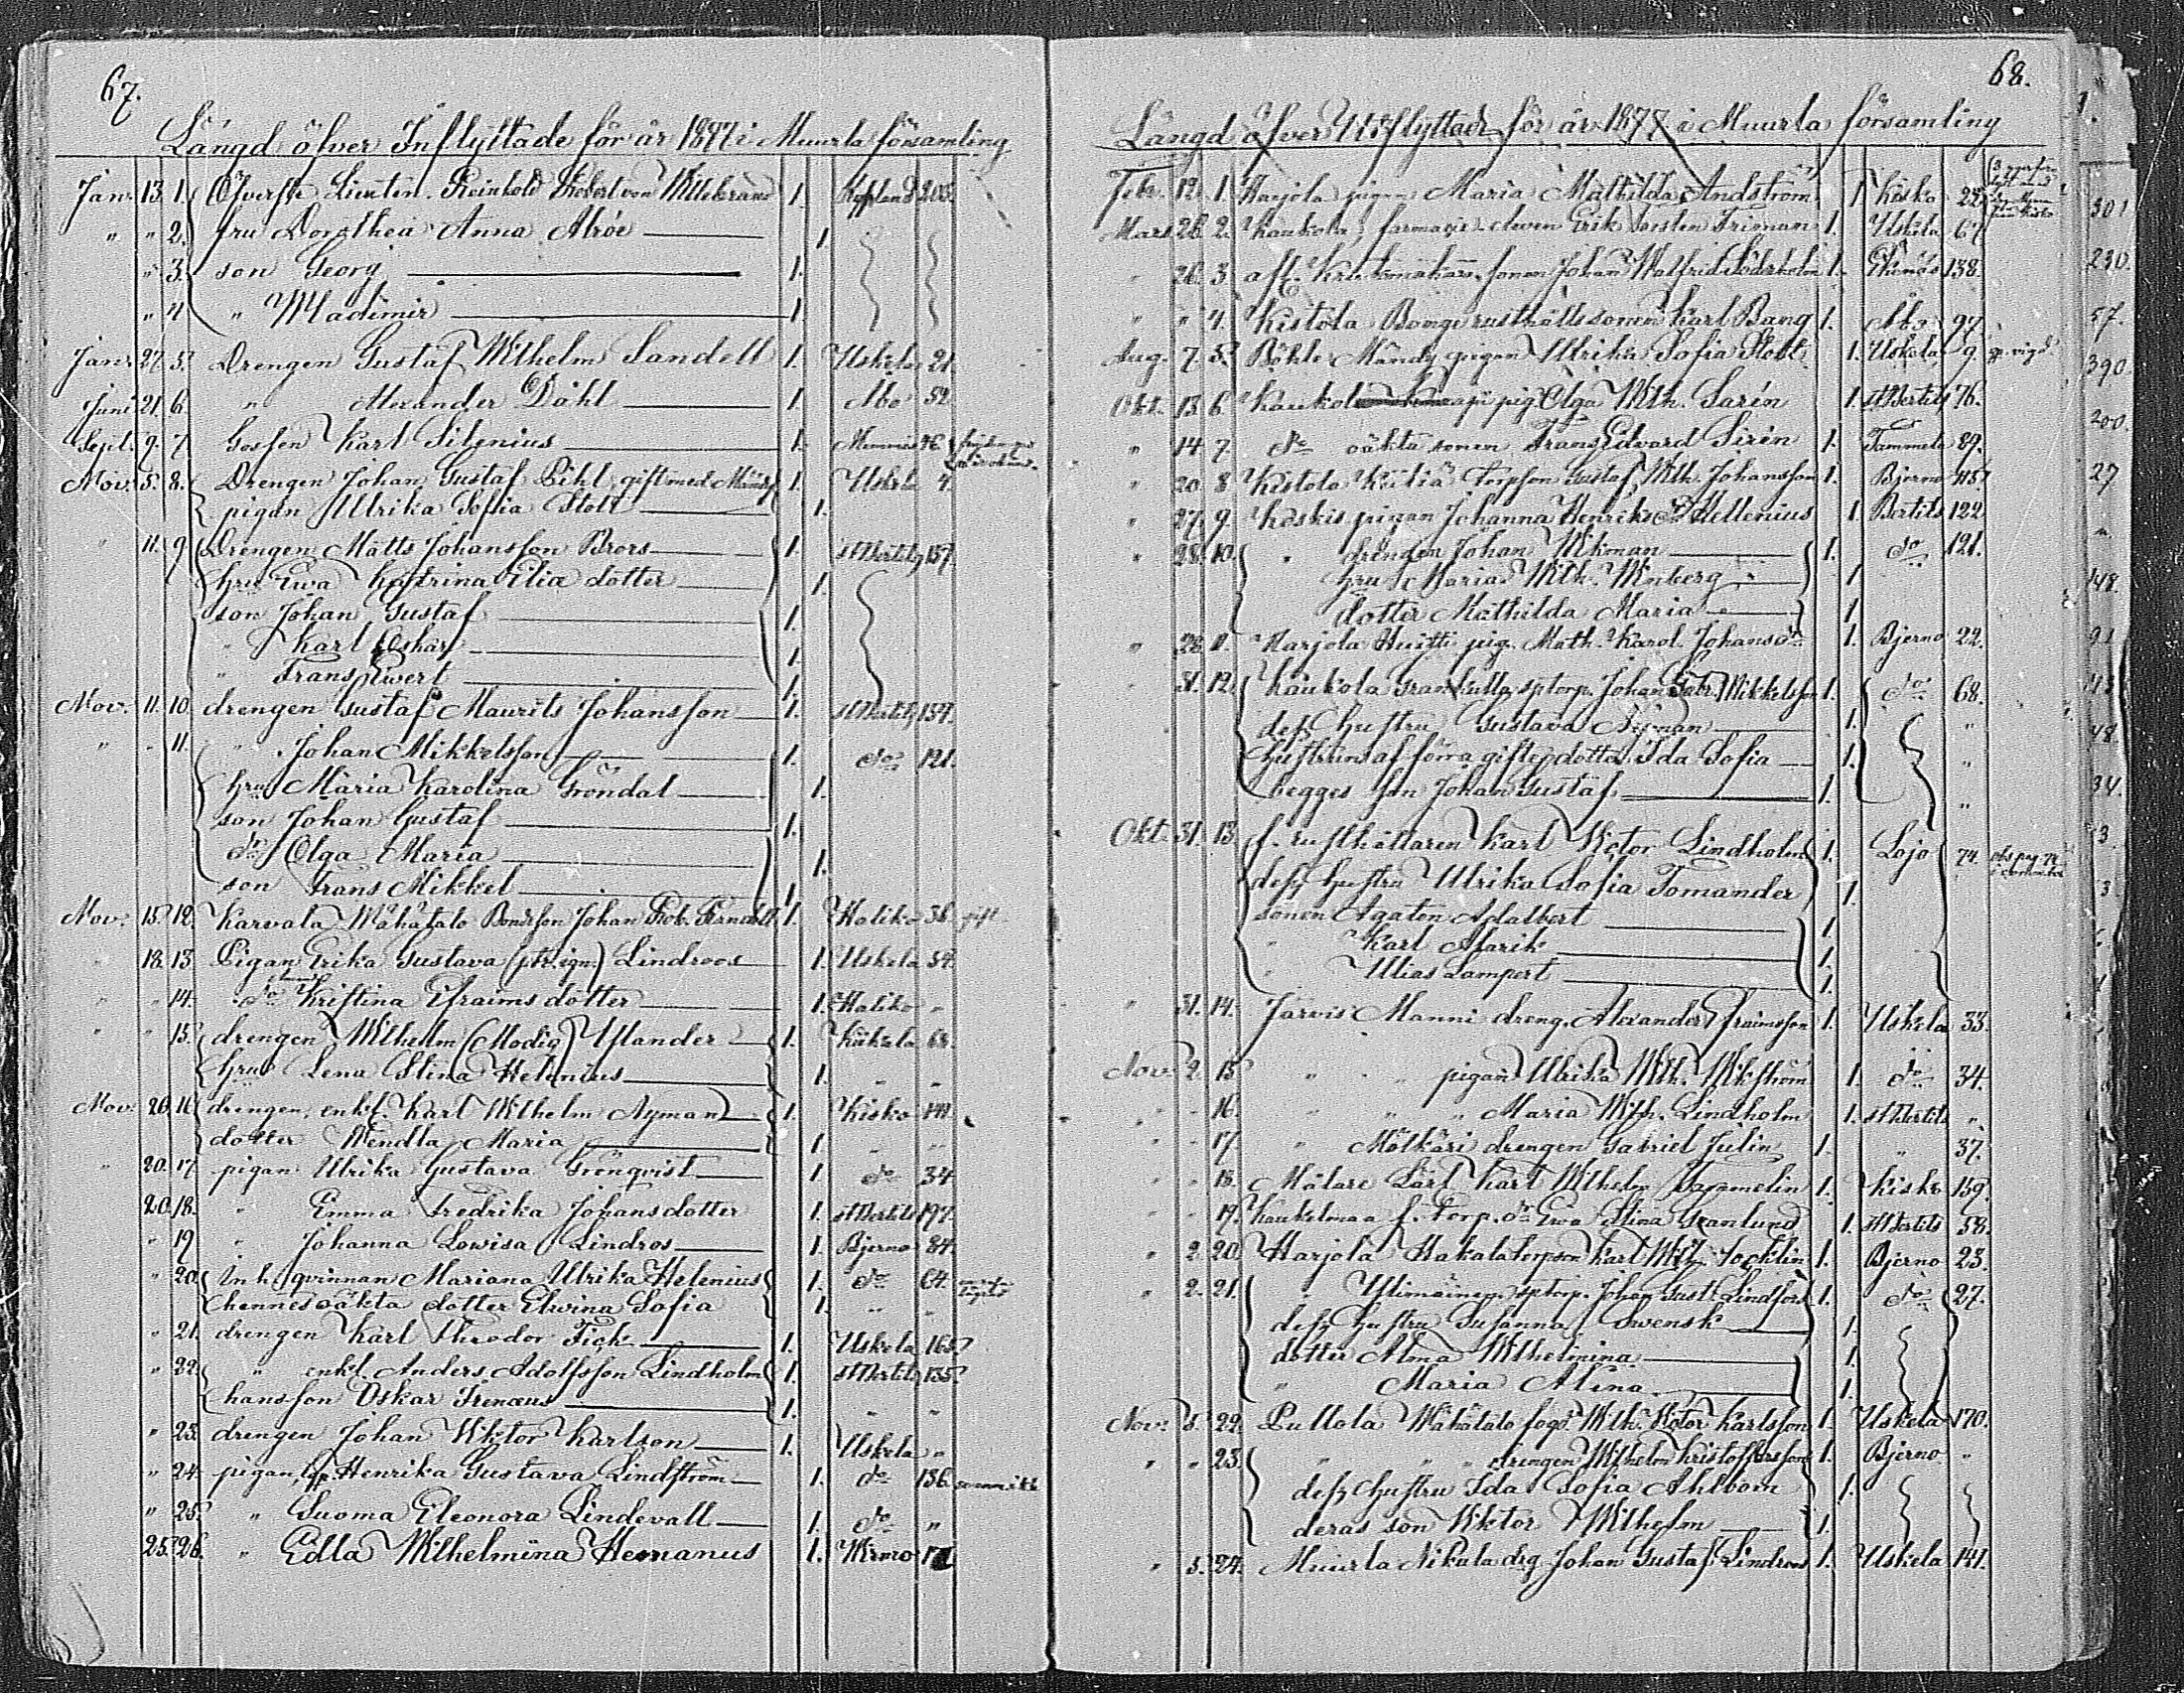 67.
Längd öfver Inflyttade för år 1877 i Muurla församling
Jan. 13. 1. Öfverste Lieuten. Reinhold Robert von Willebrand 1. 203.
" " 2. fru Dorothea Anna 1.
" 3. son Georg 1.
" 4 " Wladimir 1.
Jan. 27. 5. Drengen Gustaf Wilhelm Sandell 1. Uskela 21.
Juni 21. 6. " Alexander Dahl 1. Åbo 52
Sept. 9. 7. Gossen Karl Silenius 1.
Nov. 5. 8. Drengen Johan Gustaf Pihl, gift med 1. Uskela 4.
pigan Ulrika Sofia Stolt 1.
" 11. 9 Drengen Matts Johansson Brors 1. St Bertils 157.
hru Ewa Katrina Elia dotter 1.
son Johan Gustaf 1.
" Karl Oskar 1.
" Frans Ewert 1.
Nov. 11. 10. drengen Gustaf Maurits Johansson 1. St Bertils 159.
" " 11. " Johan Mikkelsson 1. do 121.
hru Maria Karolina Gröndal 1.
son Johan Gustaf 1.
dr Olga Maria 1.
son Frans Mikkel 1.
Nov. 15. 12. Karvala Mähätalo Bondsson Johan Rob. 1. Haliko 38 gift
" 18. 13 Pigan Erika Gustava Lindroos 1. Uskela 54.
" " 14. do Kristina Efraims dotter 1. Haliko "
" " 15. drengen Wilhelm (Modig) Ylander 1. Kiikala 68.
hru Lena Stina Helenius 1. " "
Nov. 20. 16. drengen, enkl. Karl Wilhelm Nyman 1. Kisko 144.
dotter Wendla Maria 1 " "
" 20. 17 pigan Ulrika Gustava Grönqvist 1 do 34
20. 18. " Emma Fredrika Johansdotter 1. St Bertils 197.
" 19 " Johanna Lowisa Lindros 1. Bjerno 84.
" 20. Inh. qvinnan Mariana Ulrika Helenius 1. do 64.
hennes oäkta dotter Elwina Sofia 1. " "
" 21. drengen Karl Theodor Fick 1. Uskela 165.
" 22. " enkl. Anders Adolfsson Lindholm 1. St Bertils 135.
hans son Oskar Ireneus 1. " "
" 23. drengen Johan Wiktor Karlson 1. Uskela "
" 24. pigan Henrika Gustava Lindström 1. do 136.
" 25. " Suoma Eleonora Lindevall 1. do "
25. 26. " Edla Wilhelmina Hemanus 1. Wirmo
68.
Längd öfver Utflyttade för år 1877 i Muurla församling
Feb. 12. 1. Harjola pigan Maria Mathilda Andström 1 Kisko 22.
Mars 26. 2. Kaukola, farmacie eleven Erik Torsten Friman 1. Uskela 67
" 26. 3 sonen Johan Walfrid Söderholm 1. Ekenäs 138.
" " 4. Kistola Bonge rusthålls sonen Karl Bang 1. Åbo 97
Aug. 7. 5. pigan Ulrika Sofia Stolt 1. Uskela 9 vigd
Okt. 13. 6. Kaukola pig. Olga Wilh. Sarén 1. St Bertils 76.
" 14. 7. do oäkta sonen Frans Edvard Sirén 1. Tammela 89.
" 20. 8 Kistola torpson Gustaf Wilh. Johansson 1. Bjerno
" 27. 9. Koskis pigan Johanna Henriksdr Hellenius 1. Bertils 122
" 28. 10. " drengen Johan Wikman 1. do 121.
hru Maria Wilh. Winberg 1
dotter Mathilda Maria 1
" 28. 11. Harjola Huitti pig. Math. Karol. Johansdr 1. Bjerno 22.
" 31. 12. Kaukola Johan Gabr. Mikkelsson 1. do 68.
dess hustru Gustava 1. "
hustruns af förra giftet dotter Ida Sofia 1. "
begges son Johan Gustaf 1. "
Okt. 31. 13. f. rusthållaren Karl Victor Lindholm 1. Lojo 74.
dess hustru Ulrika Sofia Tomander 1.
sonen Agaton Adalbert 1.
" Karl Alarik 1.
" Ulias Lampert 1.
" 31. 14. Järvis Manni dreng. Alexander Efraimsson 1. Uskela 33.
Nov. 2. 15 " " pigan Ulrika Wilh. Wikström 1. do 34.
" 16. " " " Maria Wilh. Lindholm 1. St Bertils "
" 17. " Mölkäri drengen Gabriel Julin 1. " 37.
" " 18. Målare Lärl. Karl Wilhelm 1. Kisko 159.
" " 19. f. torp. dr Ewa Stina Granlund 1. St Bertils 58.
" 2. 20. Harjola Hakala torpson Karl Wilh. 1. Bjerno 23.
" 2. 21. " Ylimäinen sptorp. Johan Gust. Lindfors 1. do 27.
dess hustru Susanna Swensk 1.
dotter Alma Wilhelmina 1.
" Maria Alina 1.
Nov. 5. 22. Pullola Mähätalo Wilh. Victor Karlsson 1. Uskela 170.
" " 23. " " drengen Wilhelm Kristoffersson 1. Bjerno "
dess hustru Ida Sofia Ahlbom 1.
deras son Wiktor Wilhelm 1.
" 5. 24. Muurla Nikula drg Johan Gustaf Lindroos 1. Uskela 141.